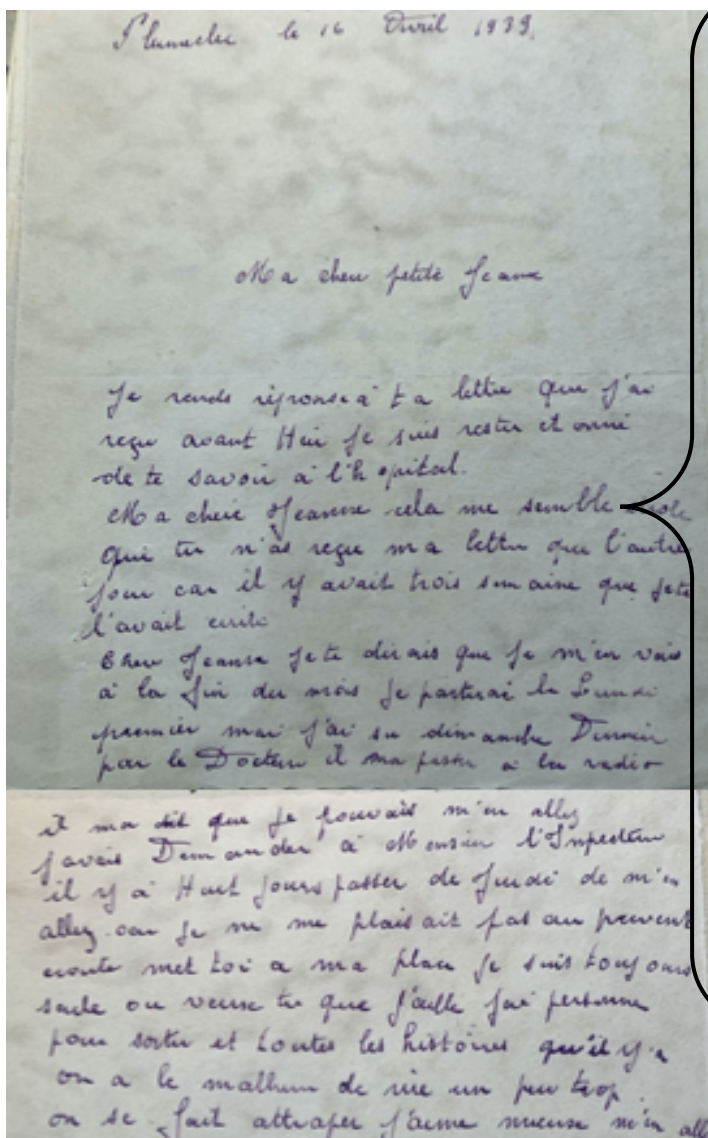 Plumelec le 16 Avril 1939.
Ma cher petite Jeanne
Je rends réponse à ta lettre que j'ai
reçu avant Hier je suis rester etonné
de te savoir à l'hopital.
Ma cheré Jeanne cela me semble drole
que tu n'as reçu ma lettre que l'autre
jour car il y avait trois semaine que je te
l'avait ecrite
Cher Jeanne je te dirais que je m'en vais
à la fin du mois je parterai le Lundi
premier mai j'ai su dimanche Dernier
par le Docteur il ma passer à la radio
il ma dit que je pouvais m'en allez
j'avais Demander à Monsieur l'Inspecteur
il y à Huit jours passer de Jeudi de m'en
allez car je ne me plaisait pas au prevent
ecoute met toi a ma place je suis toujours
seule ou veuse tu que j'aille j'ai personne
pour sortir et toutes les histoires qu'il y a
on a le malheur de rire un peu trop
on se fait attraper j'aime mieuse m'en all